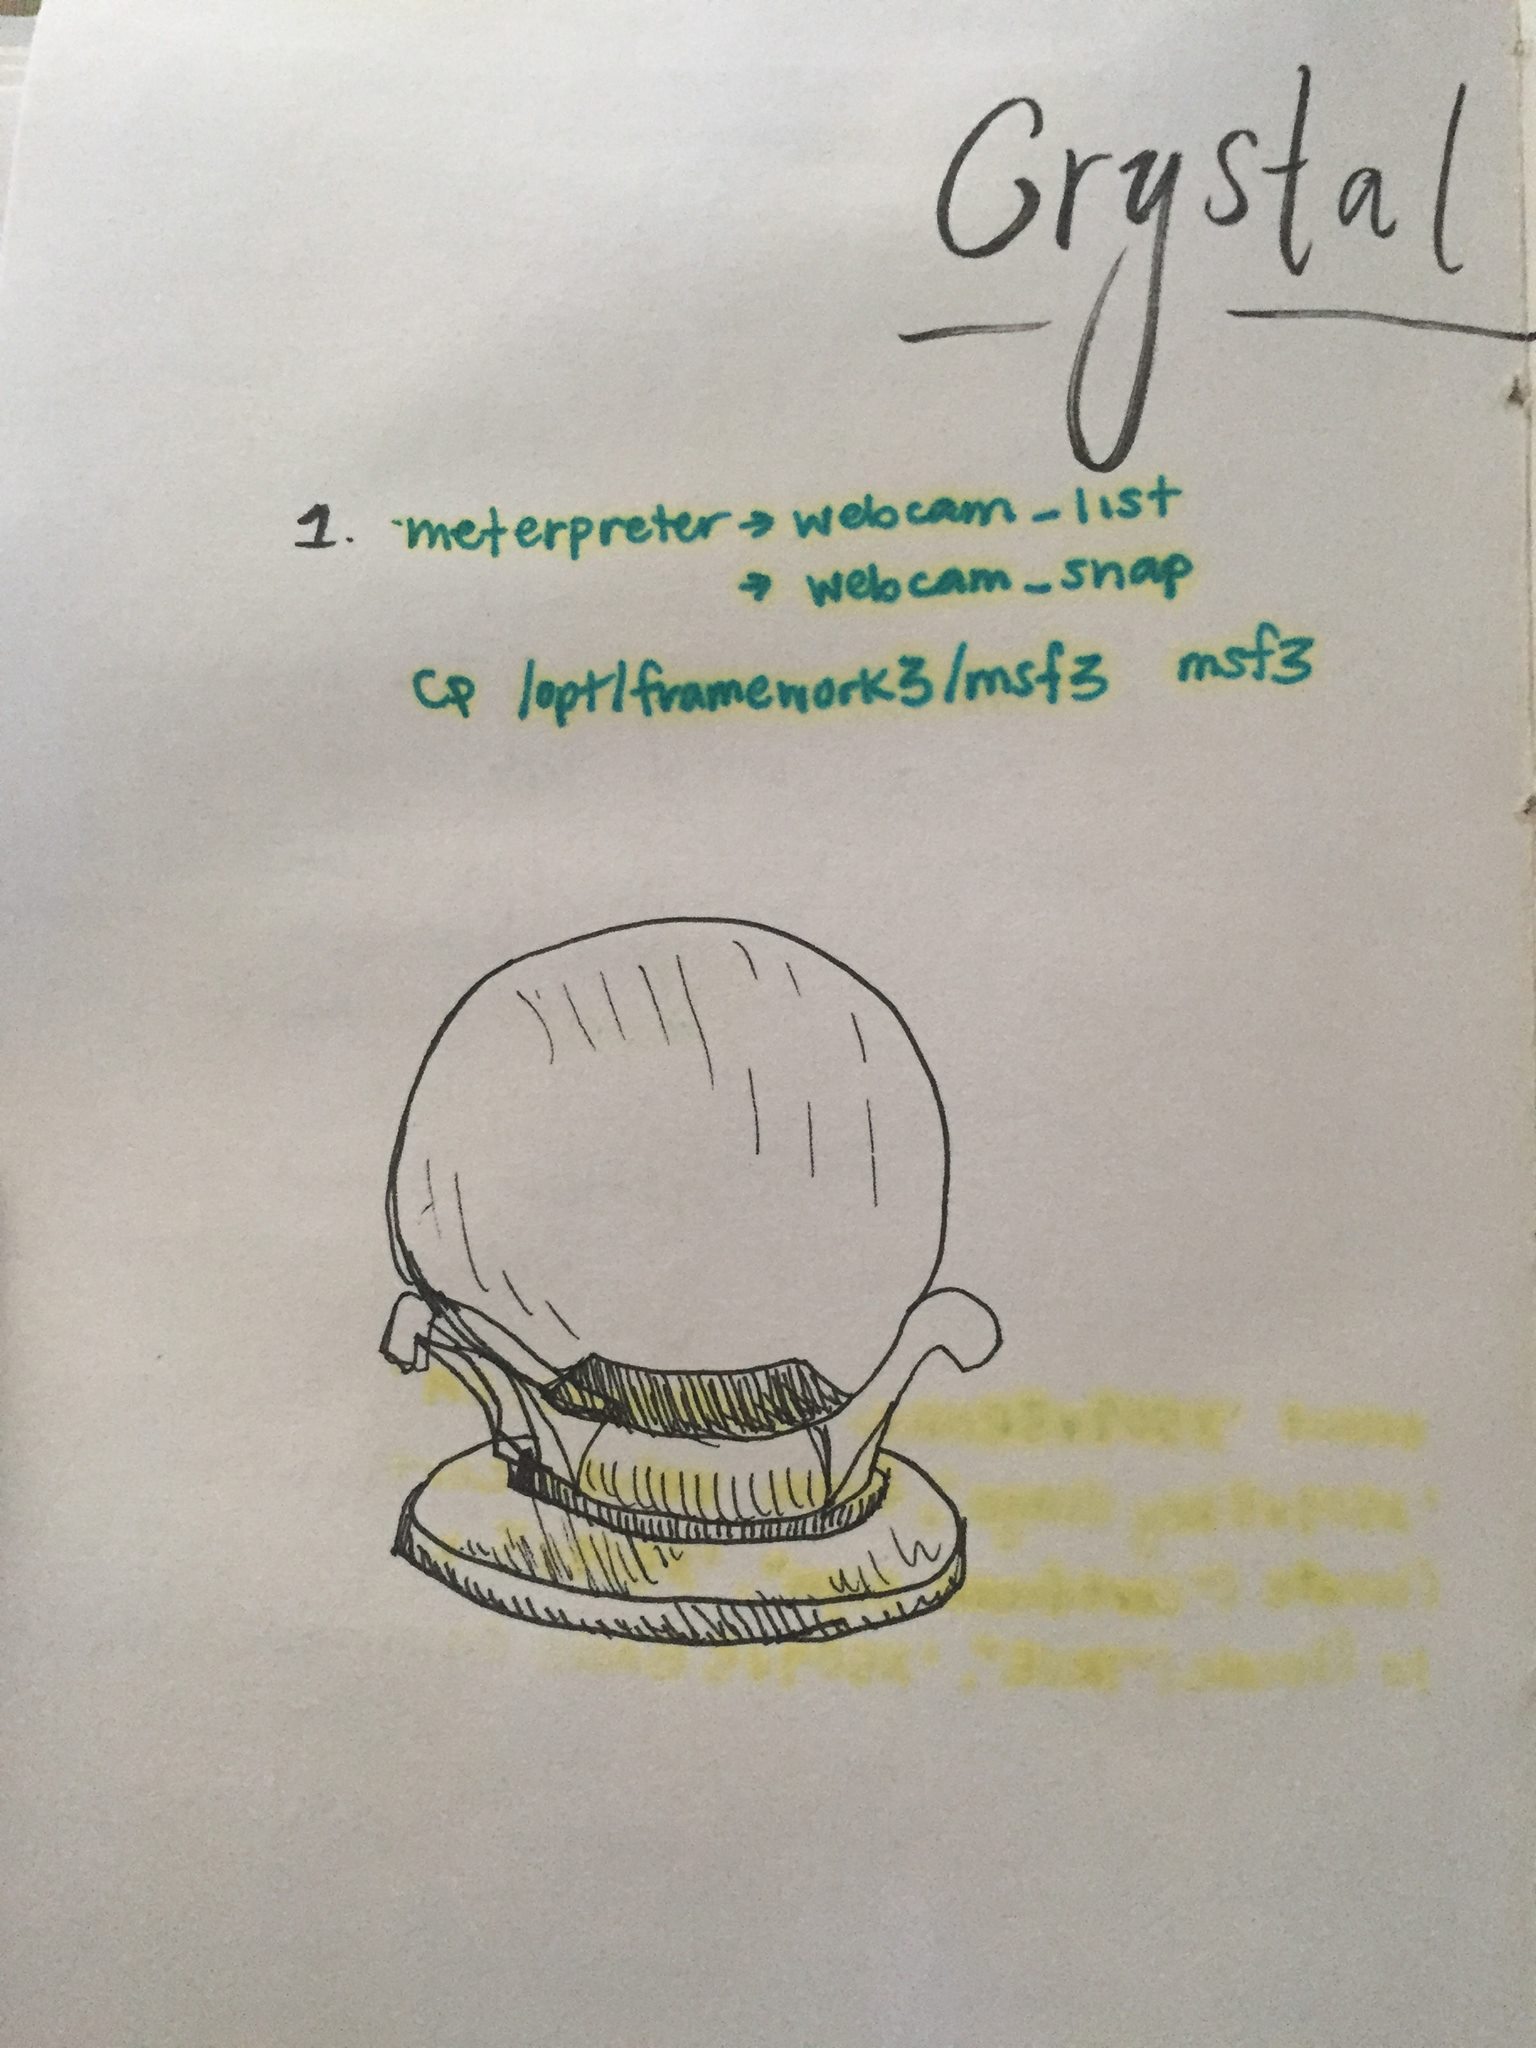 Crystal
1. meterpreter → webcam_list
→ webcam_snap
cp /opt/framework3/msf3 msf3